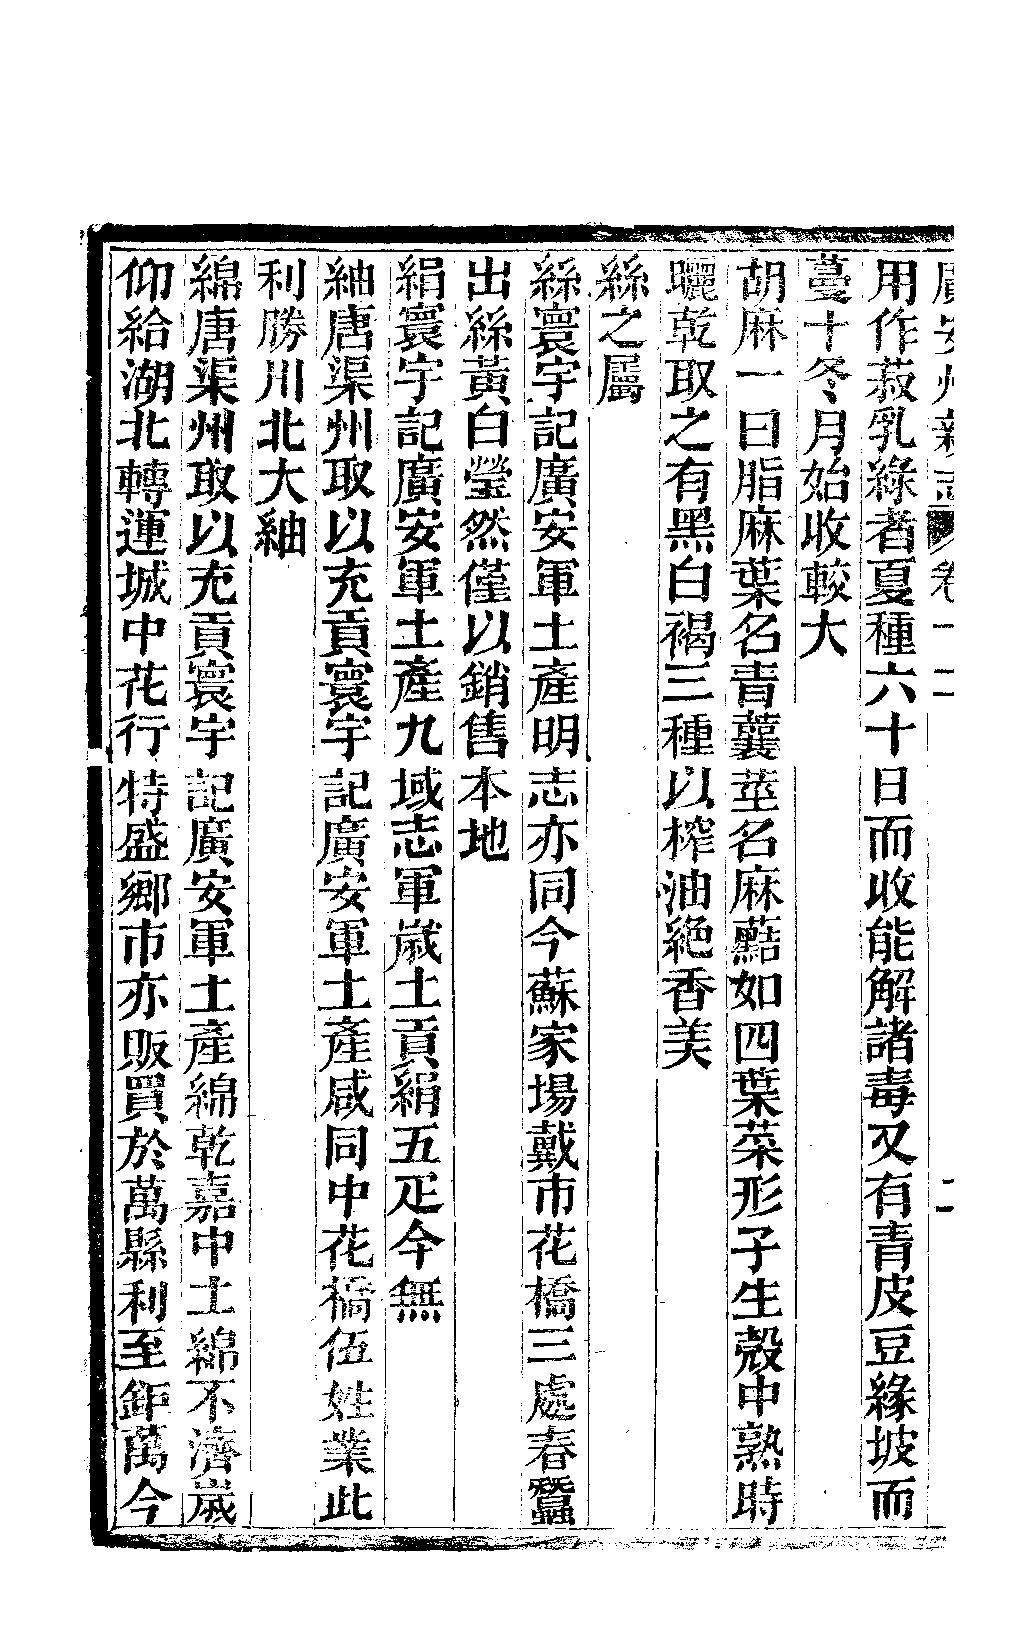 廣安州新志 卷十二 二
用作菽乳綠者夏種六十日而收能解諸毒又有青皮豆緣坡而
蔓十冬月始收較大
胡麻一曰脂麻葉名青蘘莖名麻䕸如四葉菜形子生殼中熟時
曬乾取之有黑白褐三種以榨油絕香美
絲之屬
絲寰宇記廣安軍土產明志亦同今蘇家場戴市花橋三處春蠶
出絲黃白瑩然僅以銷售本地
絹寰宇記廣安軍土產九域志軍歲土貢絹五疋今無
紬唐渠州取以充貢寰宇記廣安軍土產咸同中花橋伍姓業此
利勝川北大紬
綿唐渠州取以充貢寰宇記廣安軍土產綿乾嘉中土綿不濟歲
仰給湖北轉運城中花行特盛鄉市亦販買於萬縣利至鉅萬今